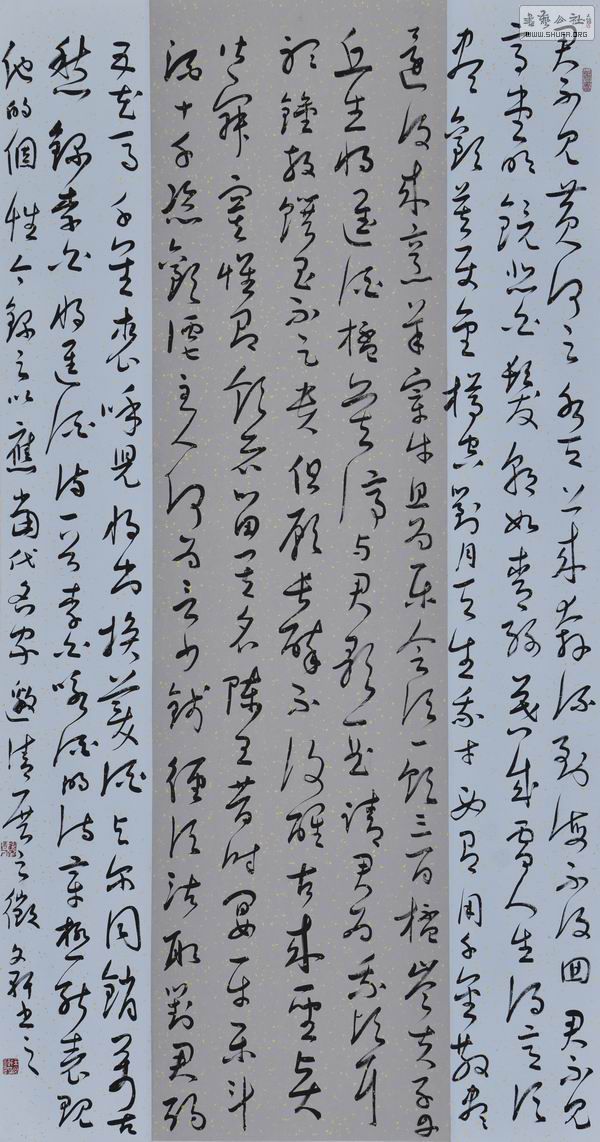 君不见黄河之水天上来奔流到海不复回君不见
高堂明镜悲白发朝如青丝暮成雪人生得意须
尽欢莫使金樽空对月天生我才必有用千金散尽
还复来烹羊宰牛且为乐会须一饮三百杯岑夫子丹
丘生将进酒杯莫停与君歌一曲请君为我倾耳
听钟鼓馔玉不足贵但愿长醉不复醒古来圣贤
皆寂寞惟有饮者留其名陈王昔时宴平乐斗
酒十千恣欢谑主人何为言少钱径须沽取对君酌
五花马千金裘呼儿将出换美酒与尔同销万古
愁 録李白将进酒诗一首李白咏酒的诗章极能表现
他的個性今録之以應當代名家邀请展之徵 文轩书之
書藝公社
WWW.SHUFA.ORG